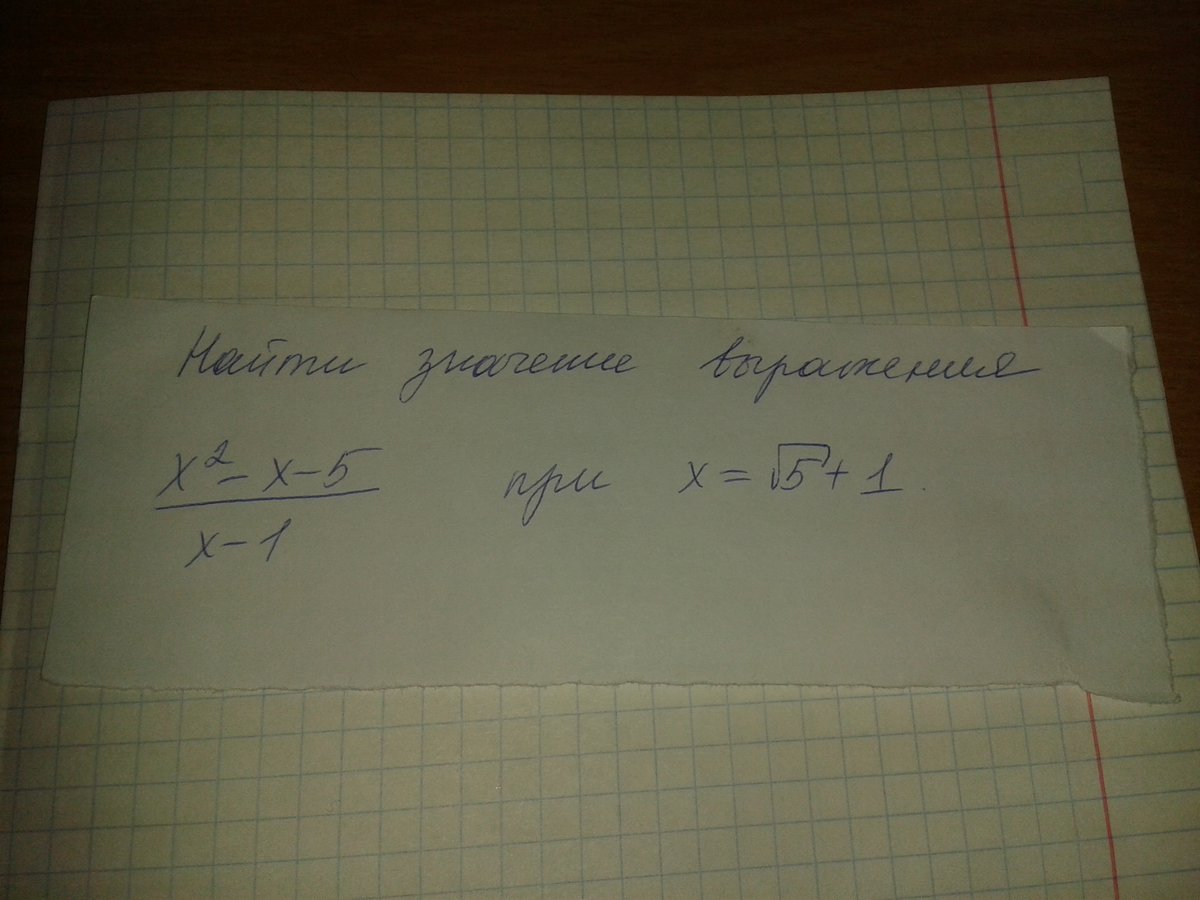 Найти значение выражения
x² - x - 5 при x = √5 + 1.
x - 1